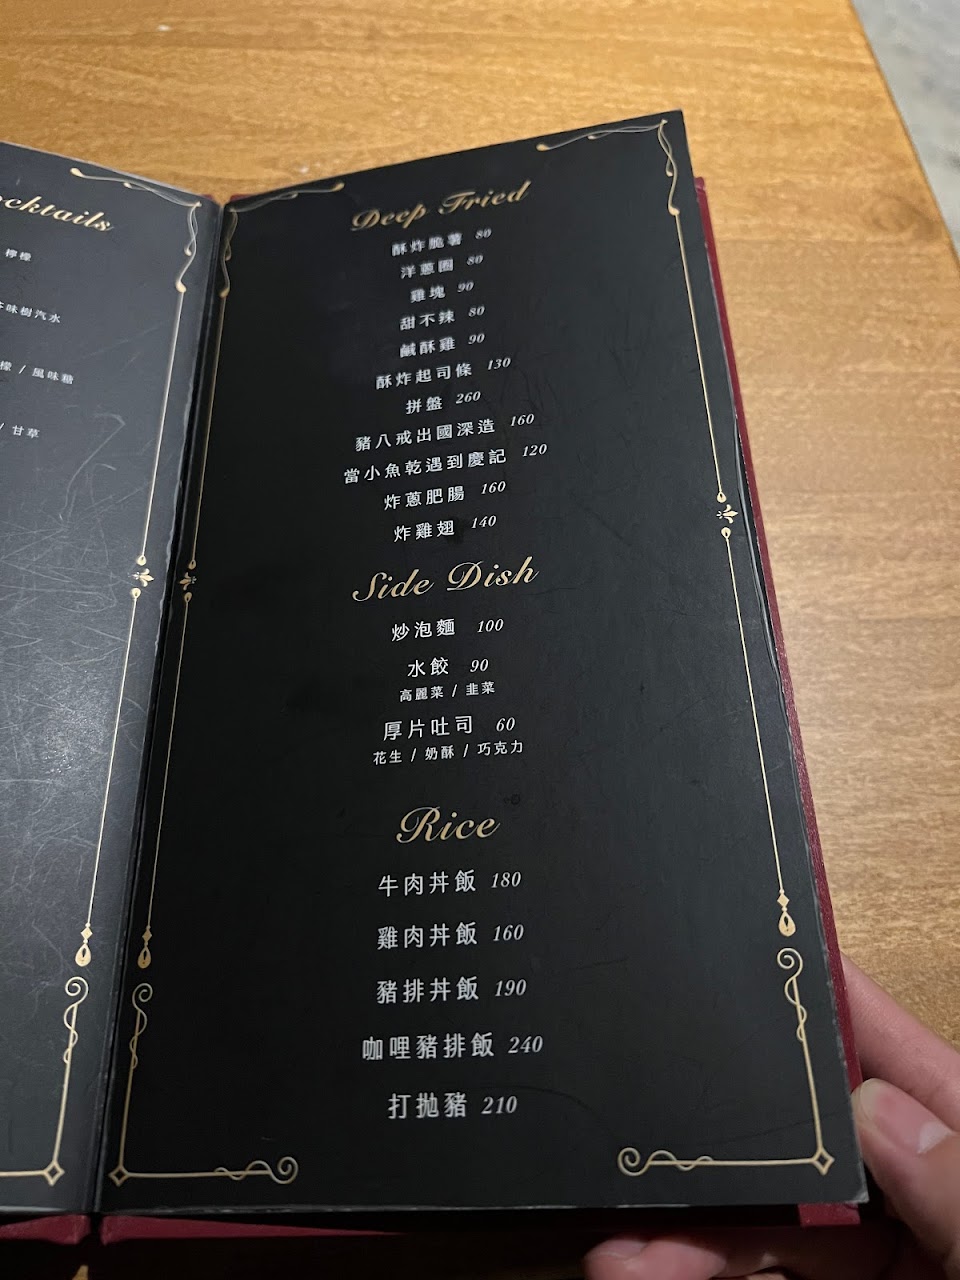 cktails
檸檬
味樹汽水
檬 / 風味糖
/ 甘草
Deep Fried
酥炸脆薯 80
洋蔥圈 80
雞塊 90
甜不辣 80
鹹酥雞 90
酥炸起司條 130
拼盤 260
豬八戒出國深造 160
當小魚乾遇到慶記 120
炸蔥肥腸 160
炸雞翅 140
Side Dish
炒泡麵 100
水餃 90
高麗菜 / 韭菜
厚片吐司 60
花生 / 奶酥 / 巧克力
Rice
牛肉丼飯 180
雞肉丼飯 160
豬排丼飯 190
咖哩豬排飯 240
打拋豬 210